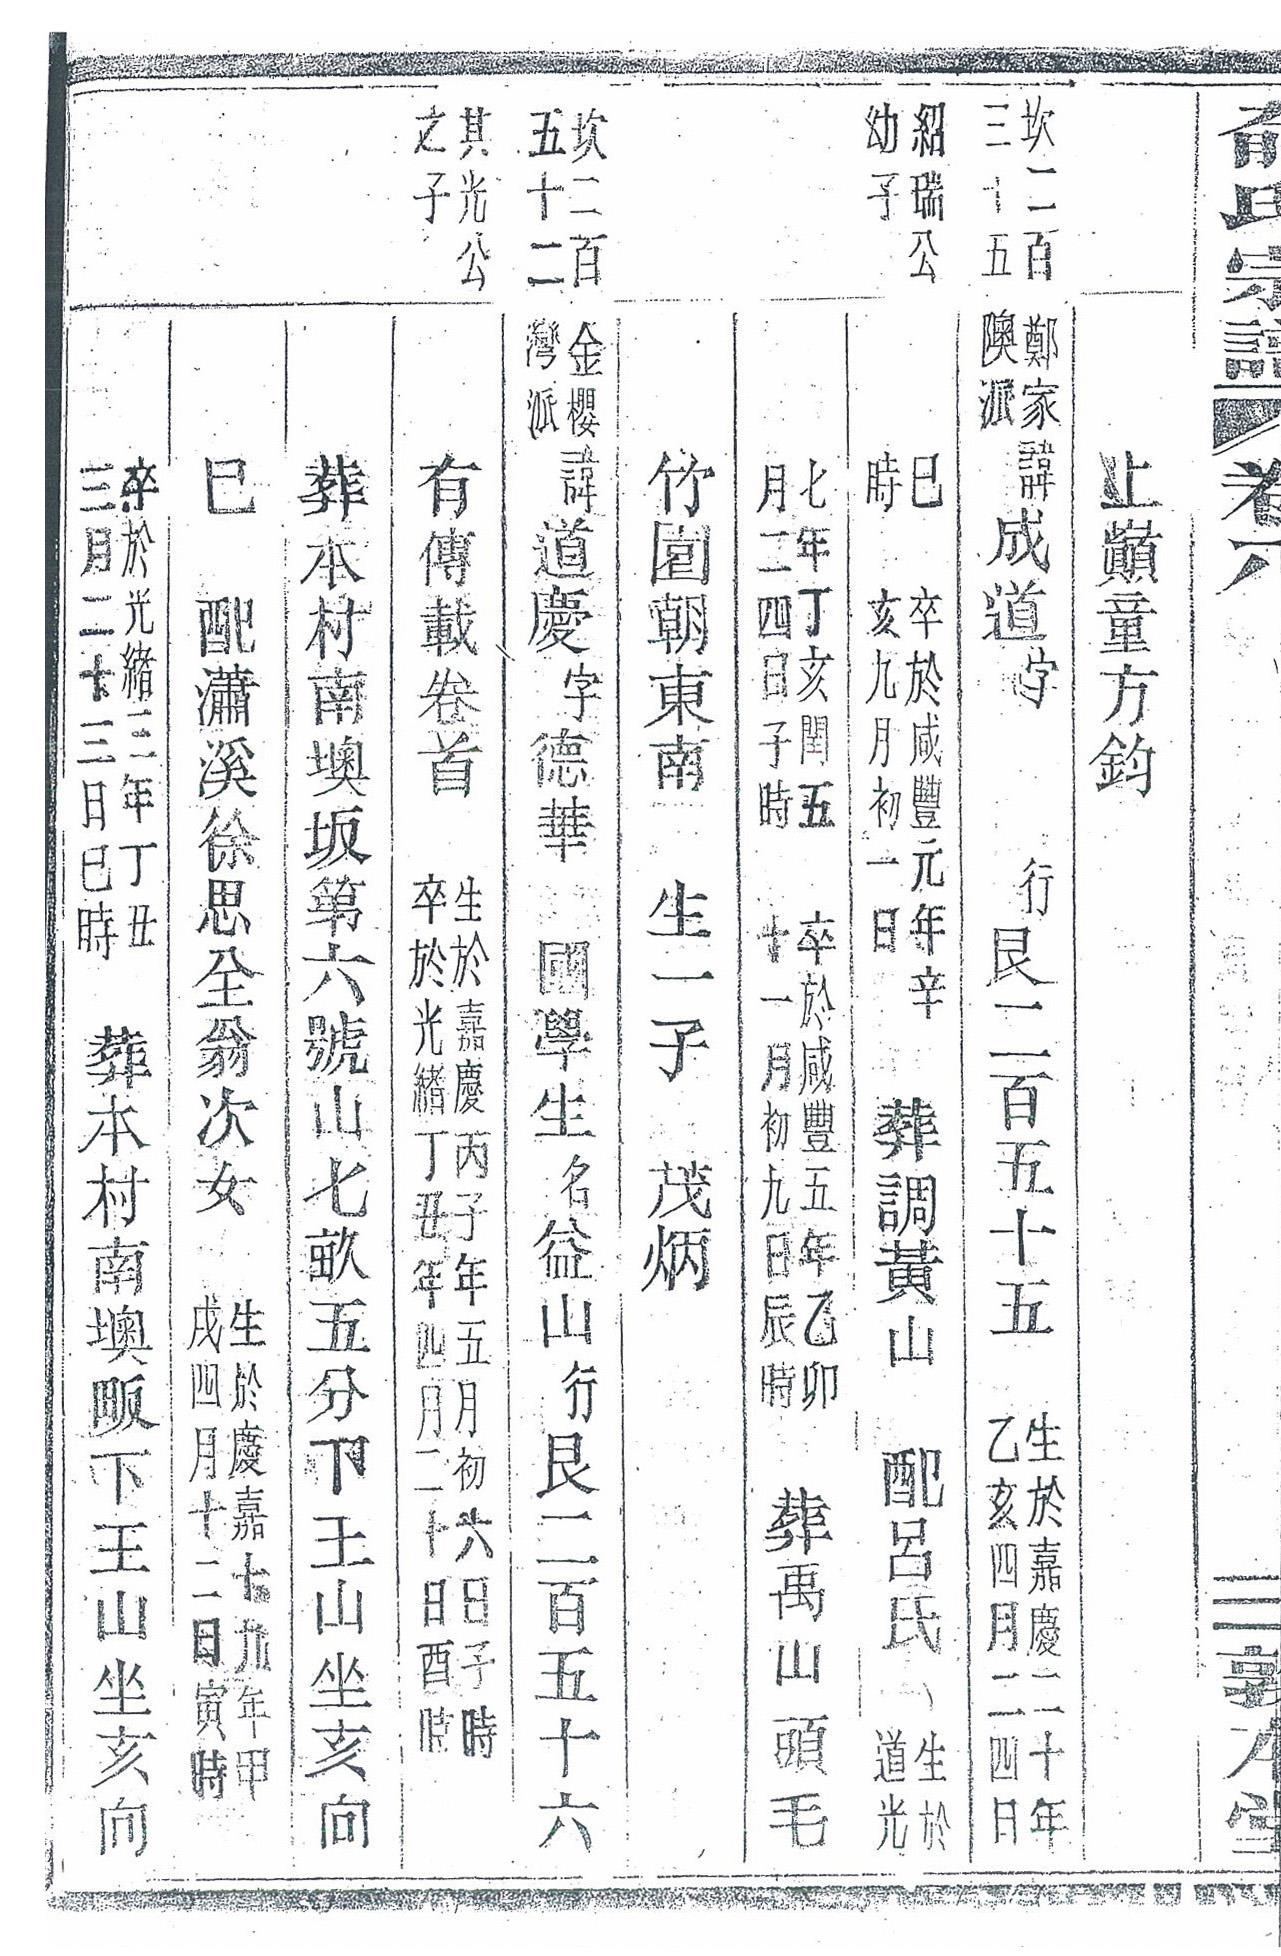 俞氏宗譜 卷八 三 敦本堂
止巔童方鈞
坎二百
三十五
鄭家
隩派
諱成道字 行艮二百五十五 生於嘉慶二十年
乙亥四月二四日
紹瑞公
幼子
巳
時
卒於咸豐元年辛
亥九月初一日
葬調黃山 配呂氏 生於
道光
七年丁亥閏五
月二四日子時
卒於咸豐五年乙卯
十一月初九日辰時
葬禹山頭毛
竹園朝東南 生一子 茂炳
坎二百
五十二
金櫻
灣派
諱道慶字德華 國學生名益山行艮二百五十六
其光公
之子
有傳載卷首 生於嘉慶丙子年五月初六日子時
卒於光緒丁丑年四月二十日酉時
葬本村南墺坂第六號山七畝五分下王山坐亥向
巳 配瀟溪徐思全翁次女 生於慶嘉十九年甲
戌四月十二日寅時
卒於光緒三年丁丑
三月二十三日巳時
葬本村南墺畈下王山坐亥向